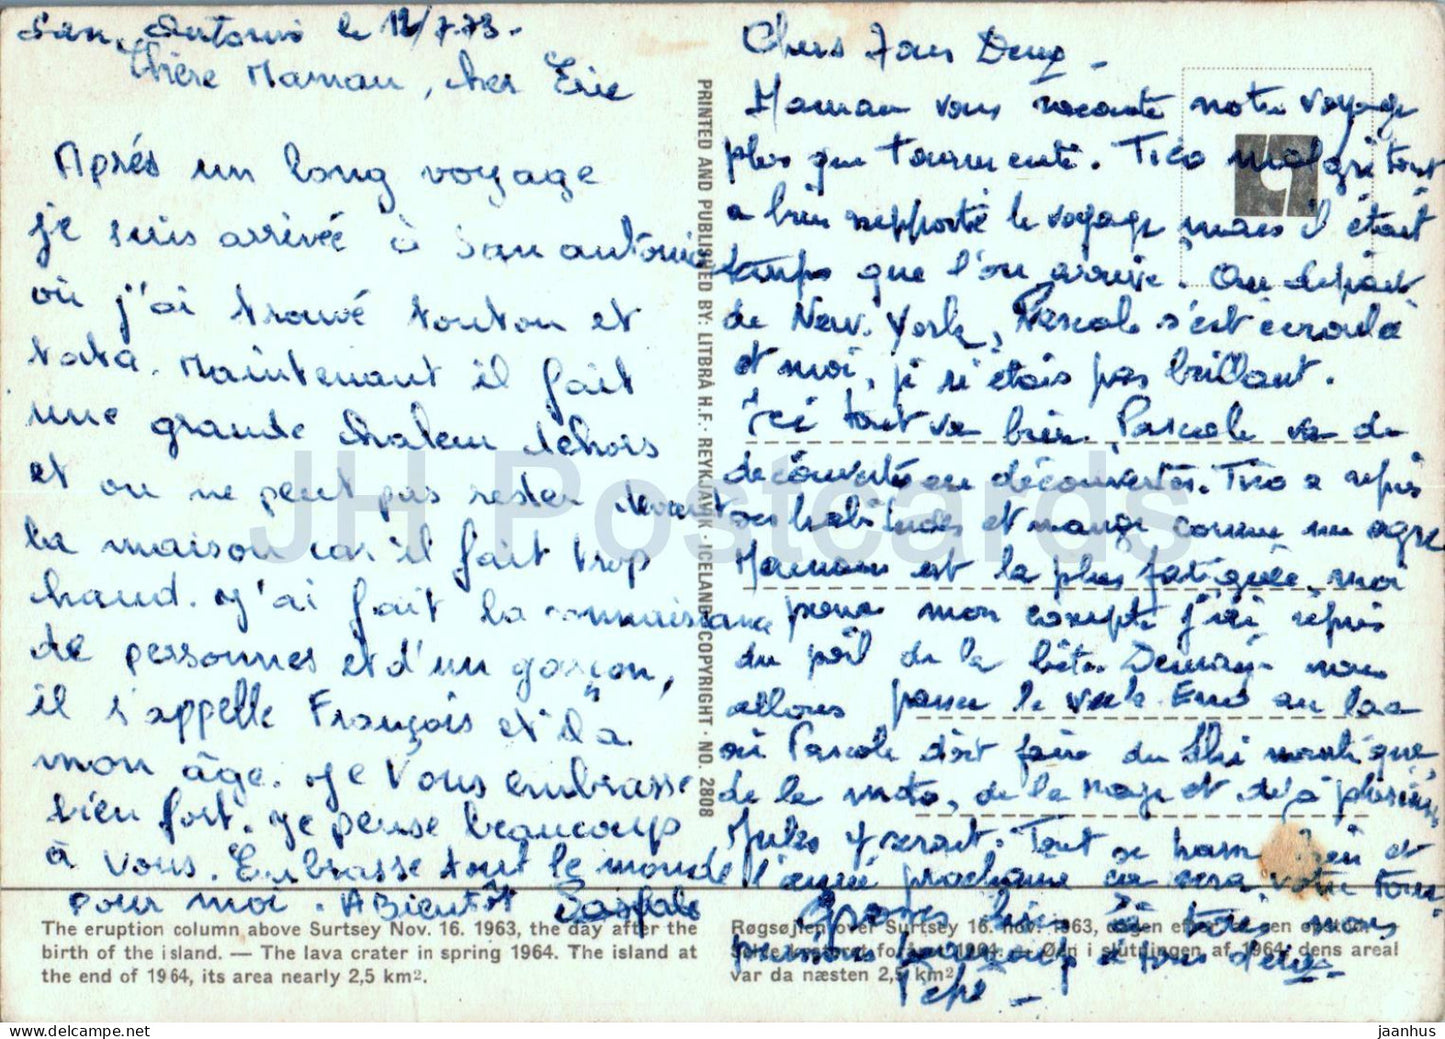 San Antonio le 12/7.73.
Chère Maman, cher Eric
Aprés un long voyage
je suis arrivée à San antonio
où j'ai trouvé tonton et
tata. Maintenant il fait
une grande chaleur dehors
et on ne peut pas rester devant
la maison car il fait trop
chaud. J'ai fait la connaissance
de personnes et d'un garçon,
il s'appelle François et il a
mon âge. Je vous embrasse
bien fort. Je pense beaucoup
à vous. Embrasse tout le monde
pour moi. A Bientôt Pascale
PRINTED AND PUBLISHED BY: LITBRÁ H.F. · REYKJAVIK · ICELAND COPYRIGHT · NO. 2808
Chers Tous Deux
Maman vous raconte notre voyage
plus que tourmenté. Tico malgré tout
a bien supporté le voyage mais il était
temps que l'on arrive. Au départ
de New. York, Pascale s'est écroulée
et moi, je n'étais pas brillant.
Ici tout va bien. Pascale va de
découverte en découvertes. Tico a repris
ses habitudes et mange comme un ogre
Maman est la plus fatiguée, moi
pour mon compte j'ai repris
du poil de la bête. Demain nous
allons passer le week. End au lac
où Pascale doit faire du ski nautique
de la moto, de la nage et déjà plusieurs
y seront. Tout se passe bien et
l'année prochaine ce sera votre tour.
Grosses bises à tous nous
pensons beaucoup à vous deux
Pépé
The eruption column above Surtsey Nov. 16. 1963, the day after the
birth of the island. — The lava crater in spring 1964. The island at
the end of 1964, its area nearly 2,5 km².
Røgsøjlen over Surtsey 16. nov. 1963, dagen efter øens opståen.
— Øen i slutningen af 1964, dens areal
var da næsten 2,5 km².
JH Postcards
jaanhus